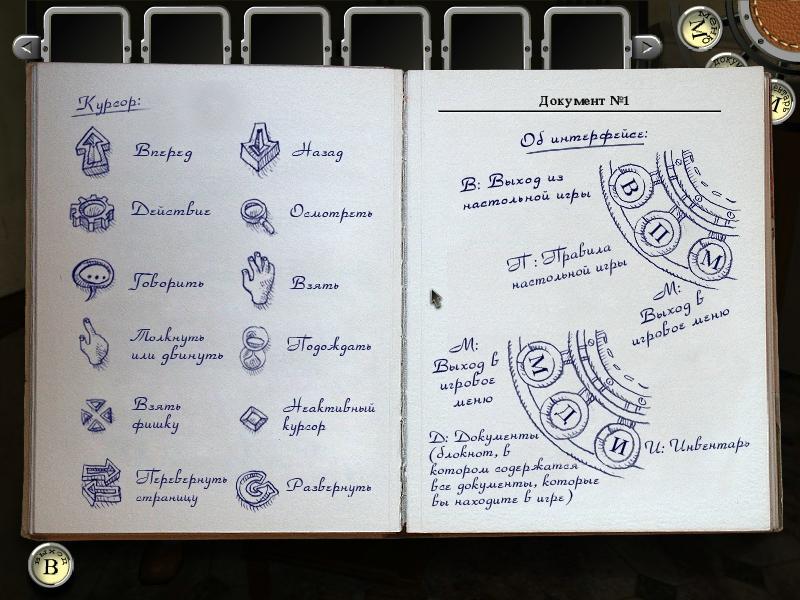 меню
М
докум
И
Курсор:
Вперед
Назад
Действие
Осмотреть
Говорить
Взять
Толкнуть
или двинуть
Подождать
Взять
фишку
Неактивный
курсор
Перевернуть
страницу
Развернуть
Документ №1
Об интерфейсе:
В: Выход из
настольной игры
В
П
М
П: Правила
настольной игры
М:
Выход в
игровое меню
М:
Выход в
игровое
меню
М
Д
И
Д: Документы
(блокнот, в
котором содержатся
все документы, которые
вы находите в игре)
И: Инвентарь
выход
В